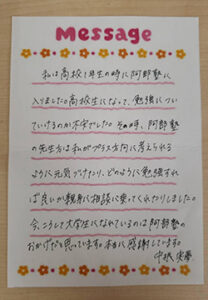 Message
私は高校1年生の時に阿部塾に
入りました。高校生になって、勉強につい
ていけるのか不安でした。その時、阿部塾
の先生方は私がプラス方向に考えられる
ように元気づけたり、どのように勉強すれ
ば良いか親身に相談に乗ってくれたりしました。
今、こうして大学生になれているのは阿部塾の
おかげだと思っています。本当に感謝しています。
中根